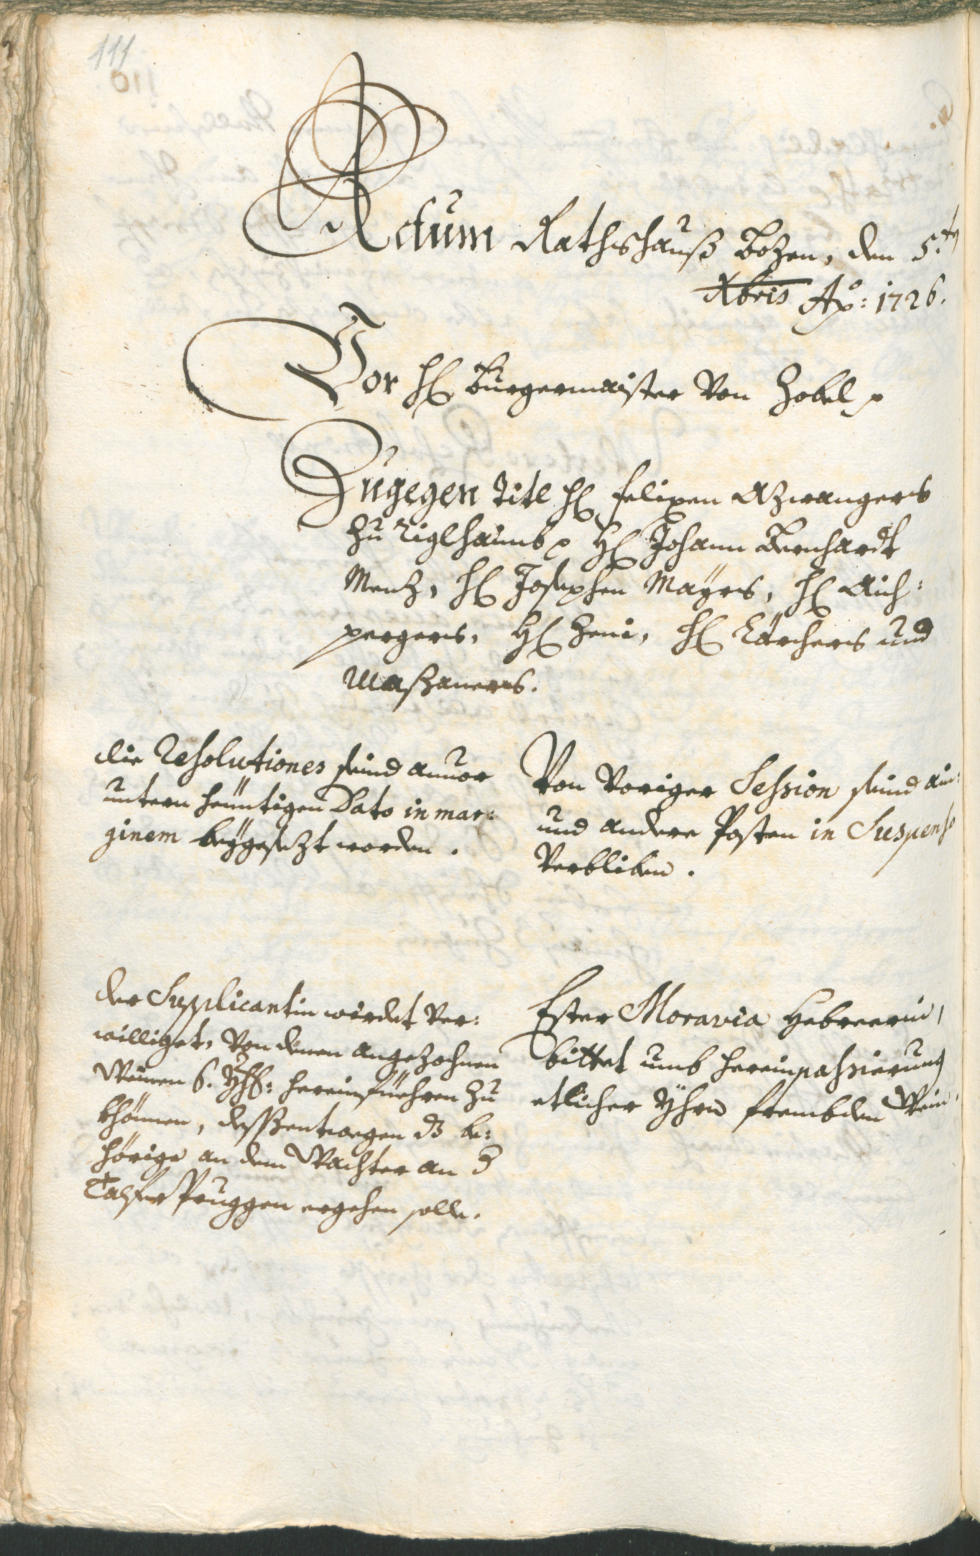 111
110
Actum Rathshauß Bozen, den 5.ten
Xbris Ao: 1726.
Vor H Burgermaister von Zobel p
Zugegen Titl H Felixen Azwangers
zu Riglhaimb p H Johann Bernhardt
Menz, H Josephen Mayrs, H Aich:
pergers, H Zeni, H Kärchers und
Waßhaners.
die Resolutiones seind anuor
untern heuntigen Dato in mar:
ginem beygesezt worden.
Von voriger Session seind ain:
und andere Posten in Suspenso
verbliben.
der Supplicantin wirdet ver:
williget, von denen angezohnen
Weinen 6. Yhß: hereinfüehren zu
khönnen, dessentwegen dz be:
hörige an dem Wachter an d
Talfer Pruggen ergehen solle.
Ester Moravia Hebreerin,
bittet umb hereinpassierung
etlicher Yhrn frembden Wein.